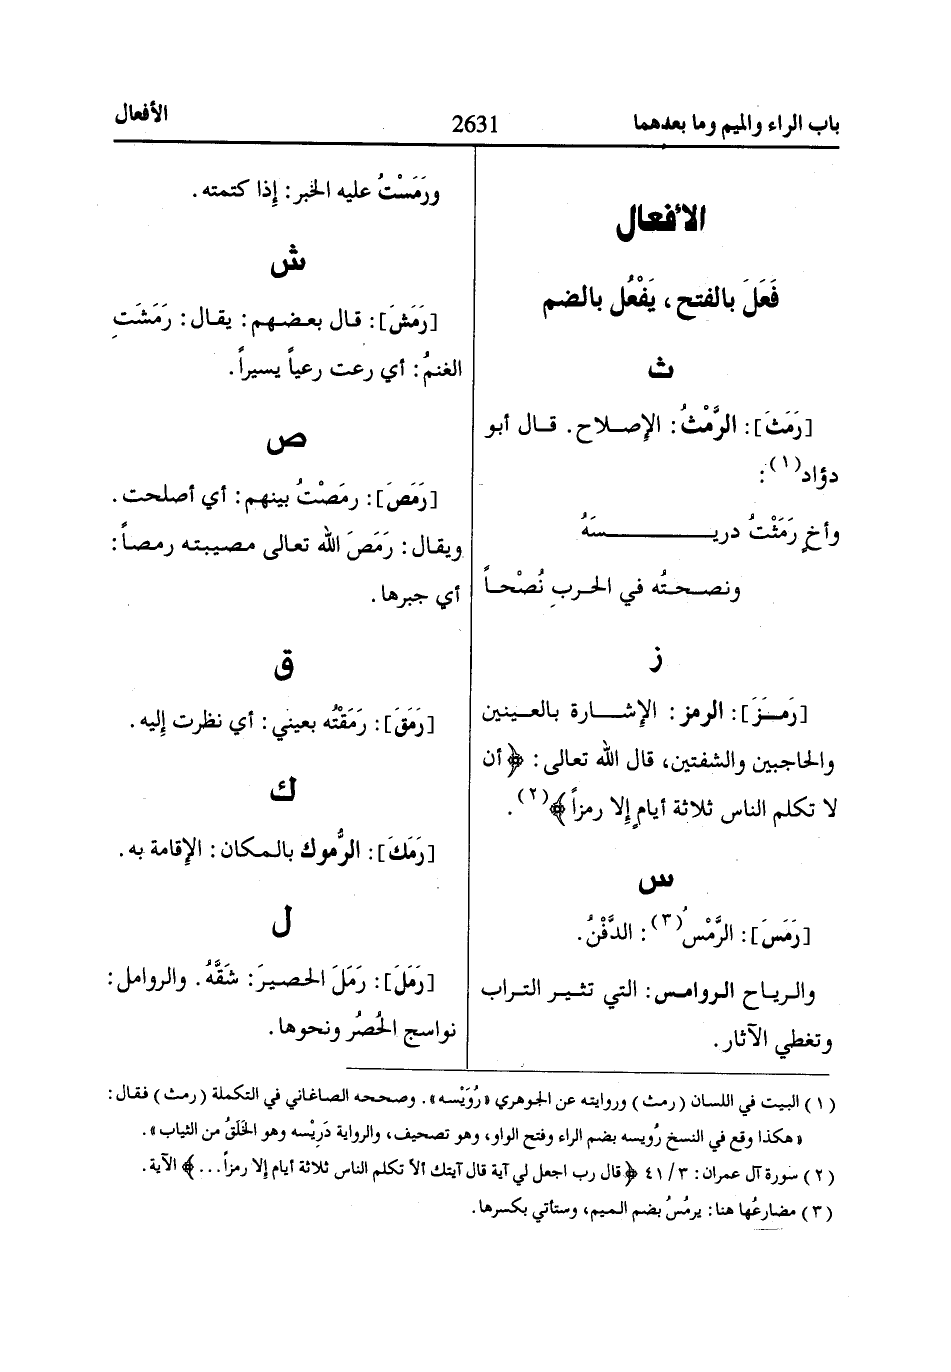 باب الراء والميم وما بعدهما
2631
الأفعال
الأفعال
فَعَلَ بالفتح، يَفْعُل بالضم
ث
[رَمَثَ]: الرَّمْثُ: الإصلاح. قال أبو
دؤاد(١):
وأخٍ رَمَثْتُ دريسَهُ
ونصحتُه في الحربِ نُصْحاً
ز
[رَمَزَ]: الرمز: الإشارة بالعينين
والحاجبين والشفتين، قال الله تعالى: ﴿أن
لا تكلم الناس ثلاثة أيامٍ إلا رمزاً﴾(٢).
س
[رَمَسَ]: الرَّمْسُ(٣): الدَّفْنُ.
والرياح الروامس: التي تثير التراب
وتغطي الآثار.
ورَمَسْتُ عليه الخبر: إذا كتمته.
ش
[رَمَشَ]: قال بعضهم: يقال: رَمَشَتِ
الغنمُ: أي رعت رعياً يسيراً.
ص
[رَمَصَ]: رمَصْتُ بينهم: أي أصلحت.
ويقال: رَمَصَ الله تعالى مصيبته رمصاً:
أي جبرها.
ق
[رَمَقَ]: رَمَقْتُه بعيني: أي نظرت إليه.
ك
[رَمَكَ]: الرُّموك بالمكان: الإقامة به.
ل
[رَمَلَ]: رَمَلَ الحصيرَ: شَقَّهُ. والروامل:
نواسج الحُصُر ونحوها.
(١) البيت في اللسان (رمث) وروايته عن الجوهري «رُوَيْسه». وصححه الصاغاني في التكملة (رمث) فقال:
«هكذا وقع في النسخ رُويسه بضم الراء وفتح الواو، وهو تصحيف، والرواية دَرِيْسه وهو الخَلَقُ من الثياب».
(٢) سورة آل عمران: ٣/ ٤١ ﴿قال رب اجعل لي آية قال آيتك ألاّ تكلم الناس ثلاثة أيام إلا رمزاً...﴾ الآية.
(٣) مضارعُها هنا: يرمُسُ بضم الميم، وستأتي بكسرها.